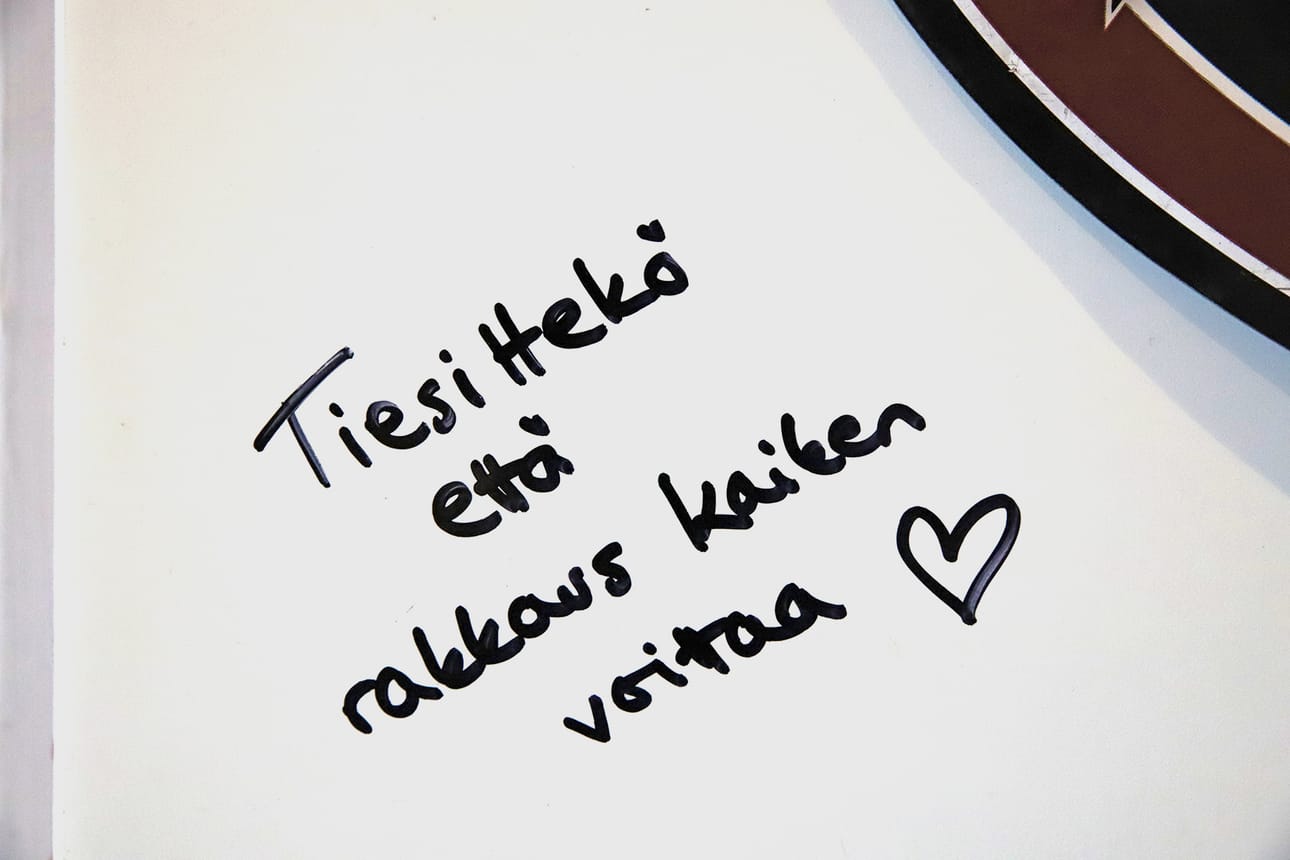 Tiesittekö
että
rakkaus kaiken
voittaa ♡